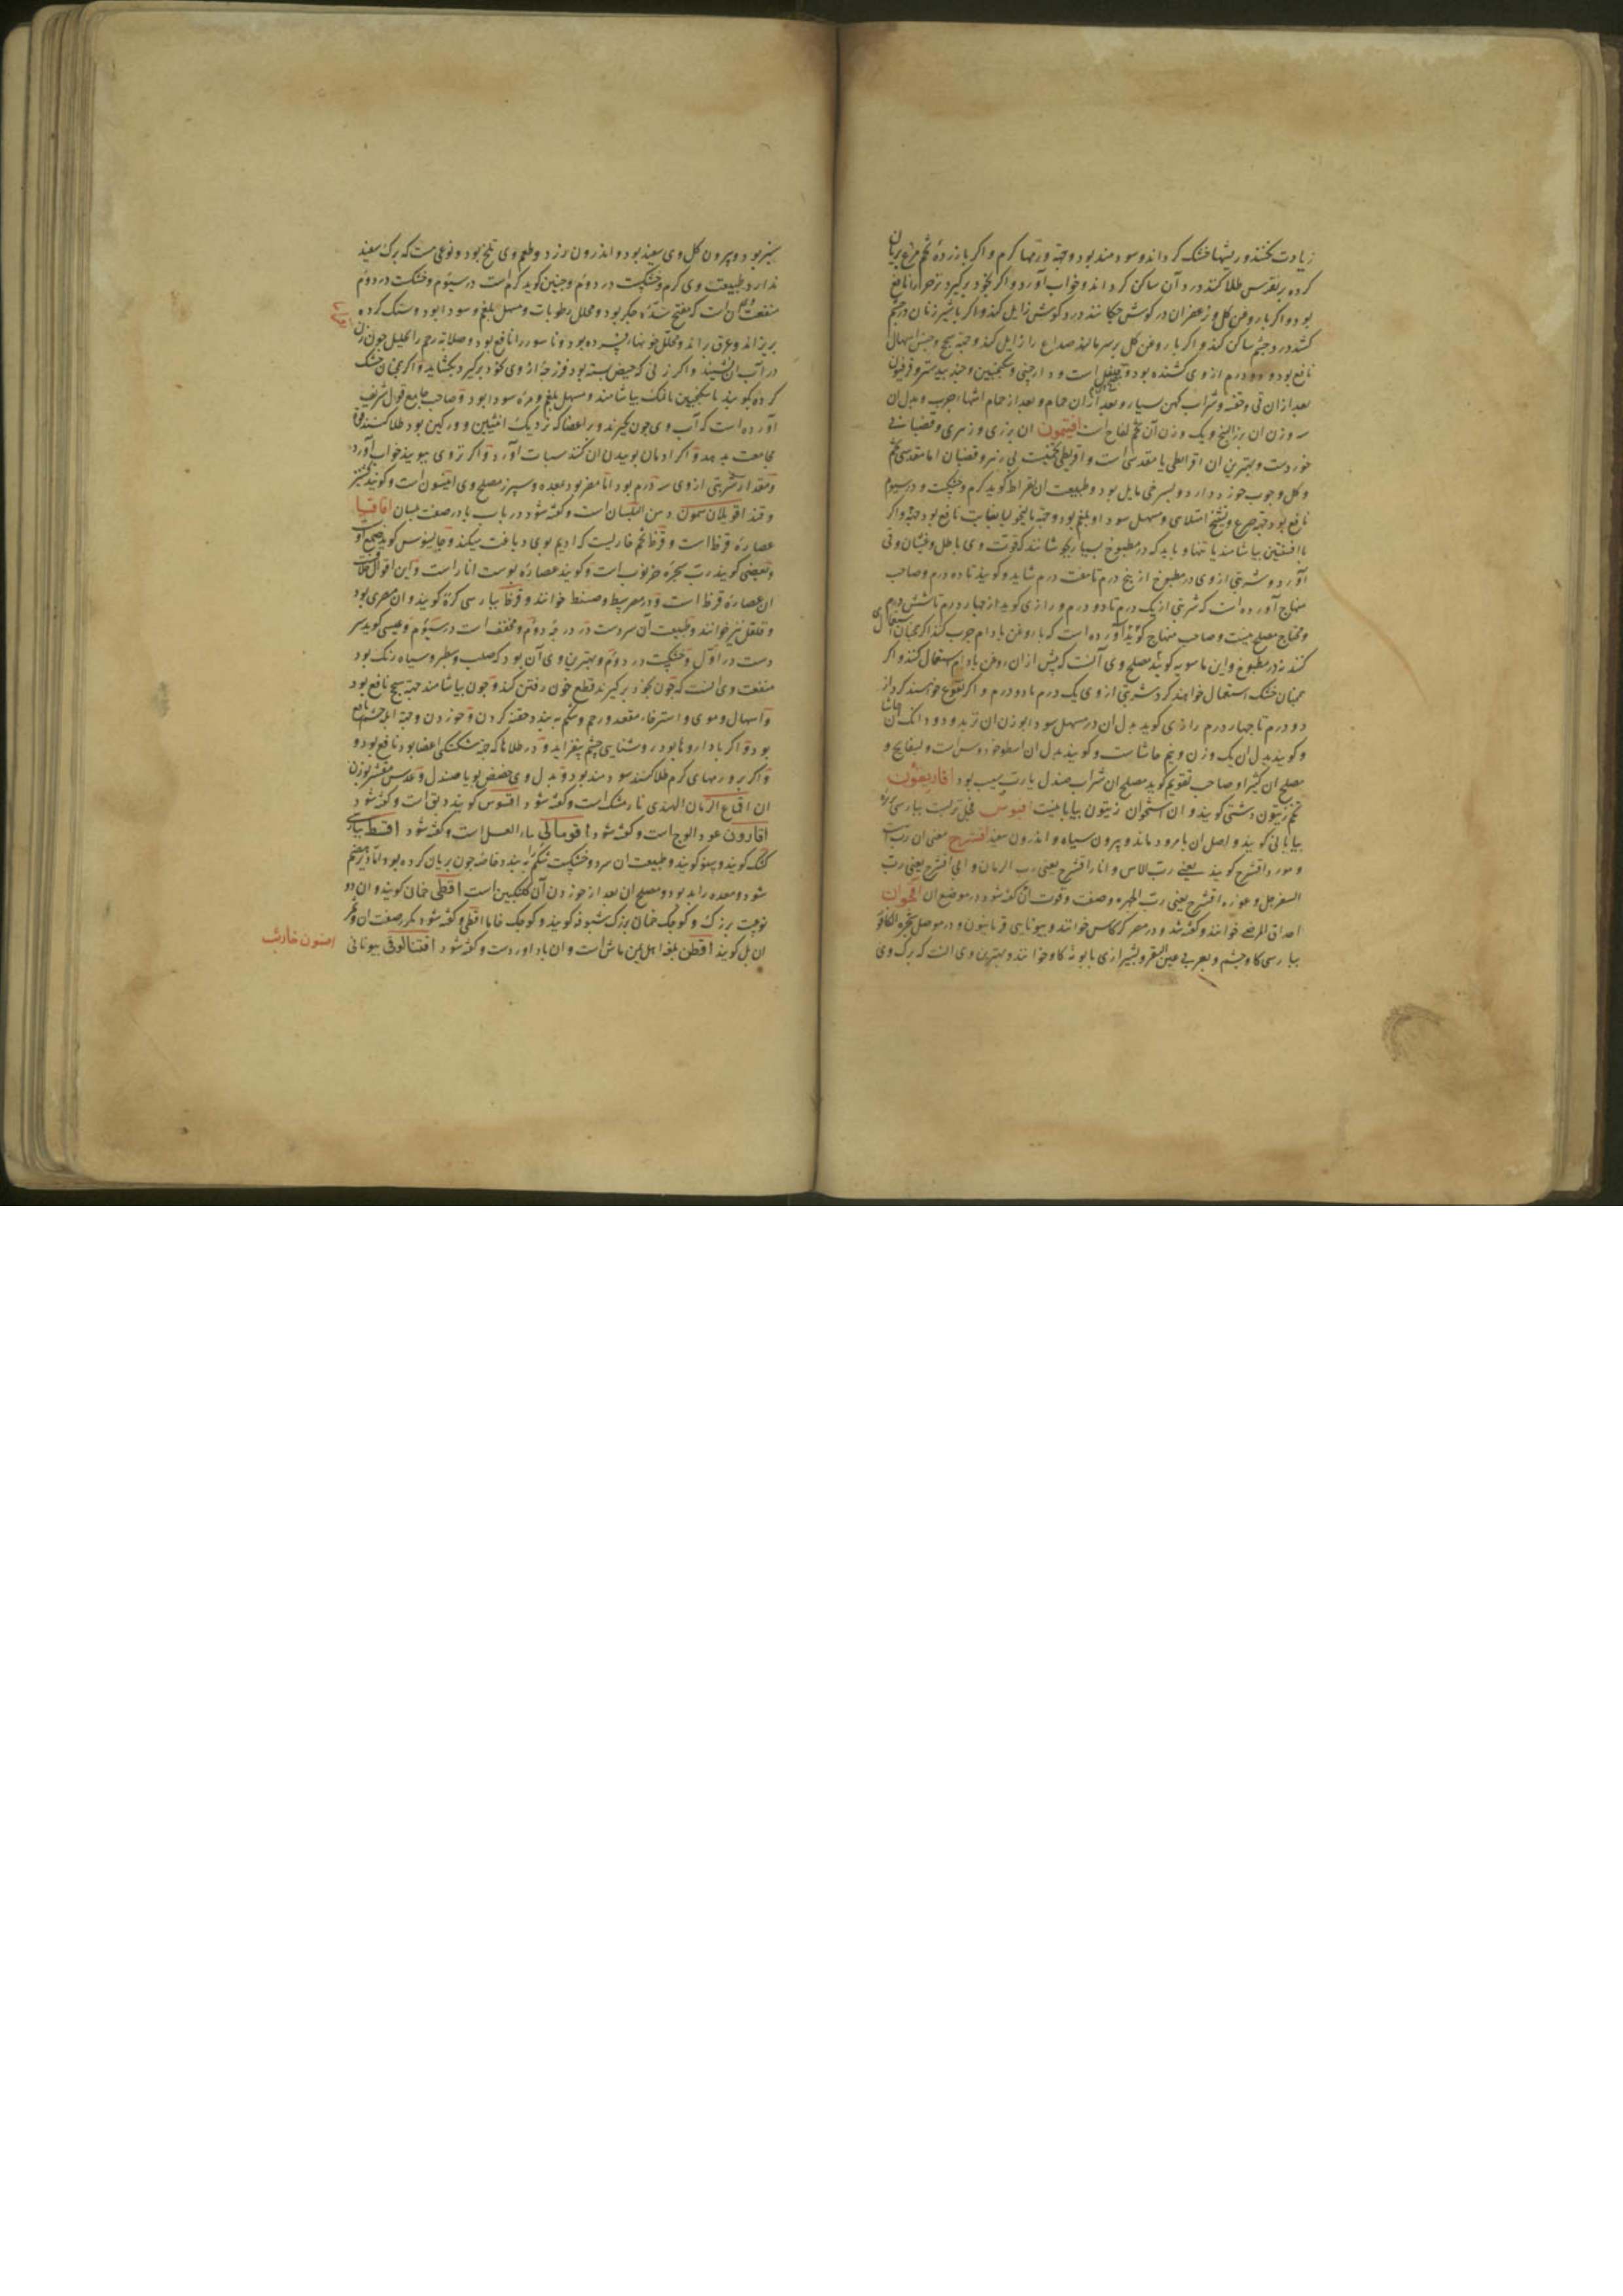 زیادت نکنند و ریشها خشک کرداند و سودمند بود و جهة ورمها کرم و اکر با زرده تخم مرغ بریان
کرده بر نقرس طلا کنند درد آن ساکن کرداند و خواب آورد و اکر بخود برکیرد زحیر را نافع
بود و اکر با روغن کل و زعفران در کوش چکانند درد کوش زایل کند و اکر با شیر زنان در چشم
کشند درد چشم ساکن کند و اکر با روغن کل بر سر مالند صداع را زایل کند و جهة سحج و حبس اسهال
نافع بود و دو درم از وی کشنده بود و است و دارچینی و سکنجبین و جندبیدستر و فرفیون
بعد از ان قی و حقنه و شراب کهن بسیار و بعد از ان حمام و بعد از حمام اشتها اجرب و بدل ان
سه وزن ان بزر البنج و یک وزن آن تخم لفاح است افیتمون ان بزری و زهری و قضبانی
خوردست و بهترین ان اقریطی یا مقدسی است و اقریطی تخمیست بی زهر و قضبان اما مقدسی تخم
و کل و چوب خورد دارد و بسرخی مایل بود و طبیعت ان بقراط کوید کرم و خشکست در سیوم
نافع بود جهة صرع و تشنج امتلایی و مسهل سودا و بلغم بود و جهة مالیخولیا بغایت نافع بود جهة و اکر
با افسنتین بیاشامند یا تنها و باید که در مطبوخ بسیار نجوشانند که قوت وی باطل و غثیان و قی
آورد و شربتی از وی در مطبوخ از پنج درم تا هفت درم شاید و کویند تا ده درم و صاحب
منهاج آورده است که شربتی از یک درم تا دو درم و رازی کوید از چهار درم تا شش درم
و محتاج مصلح نیست و صاحب منهاج کوید آورده است که با روغن بادام چرب کند اکر همچنان استعمال
کنند نه در مطبوخ و ابن ماسویه کوید مصلح وی آنست که پیش از ان روغن بادام استعمال کنند و اکر
همچنان خشک استعمال خواهند کرد شربتی از وی یک درم تا دو درم و اکر نقوع خواهند کرد از
دو درم تا چهار درم رازی کوید بدل ان در مسهل سودا بوزن ان تربد و دو دانک ان حاشا
و کویند بدل ان یک وزن و نیم حاشا ست و کویند بدل ان اسطوخودوس است و بسفایج و
مصلح ان کثیرا و صاحب تقویم کوید مصلح ان شراب صندل یا رب سیب بود افاریقون
تخم زیتون دشتی کویند و ان استخوان زیتون بیابانیست افیوس فجل بریست بپارسی تره
بیابانی کویند و اصل ان بامرود ماند و بیرون سیاه و اندرون سفید افشرج معنی ان ربست
و مورد افشرج کویند یعنی رب الاس و انار افشرج یعنی رب الرمان و ابی افشرج یعنی رب
السفرجل و غوره افشرج یعنی رب الحصرم و صفت و قوت آن کفته شود در موضع ان اقحوان
احداق المرضی خوانند و کفته شد و در مصر کرکاس خوانند و بیونانی قرنانیون و در موصل شجره الکافور
بپارسی کاوچشم و بعربی عین البقر و بشیرازی بابونه کاو خوانند و بهترین وی آنست که برک وی
سبز بود و بیرون کل وی سفید بود و اندرون زرد و طعم وی تلخ بود و نوعی هست که برک سفید
ندارد طبیعت وی کرم و خشکست در دوم و جنین کوید کرم است در سیوم و خشکست در دوم
منفعت ان است که مفتح سده جکر بود و محلل رطوبات و مسهل بلغم و سودا بود و سنک کرده
بریزاند و عرق براند و محلل خونهاء فسرده بود و ناسور را نافع بود و صلابه رحم را تحلیل چون زن
در آب ان نشیند و اکر زنی که حیض بسته بود فرزجه از وی بخود برکیرد بکشاید و اکر همچنان خشک
کرده بکوبند با سکنجبین یا نمک بیاشامند و مسهل بلغم و مره سودا بود و صاحب جامع قول شریف
آورده است که آب وی چون بکیرند و بر اعضا که نزدیک انثیین و ورکین بود طلا کنند قوة
مجامعت بدهد و اکر ادمان بوییدن ان کنند سبات آورد و اکر تر وی ببویند خواب آورد
و مقدار شربتی از وی سه درم بود اما مضر بود بمعده و سپرز مصلح وی انیسون است و کویند
و قند اقویلاسمون دهن البلسان است و کفته شود در باب با در صفت بلسان اقاقیا
عصاره قرظ است و قرظ تخم خاریست که ادیم بوی دباغت میکنند و جالینوس کوید صمغ
و بعضی کویند رب شجره خرنوب است و کویند عصاره پوست انار است و این اقوال خلافست
ان عصاره قرظ است و در مصر و صنط خوانند و قرظ بپارسی کرة کویند و ان مصری بود
و قلقل نیز خوانند و طبیعت آن سردست در درجه دوم و مجفف است در سیوم و عیسی کوید سر
دست در اول و خشکست در دوم و بهترین وی آن بود که صلب و سطبر و سیاه رنک بود
منفعت وی آنست که چون بخود برکیرند قطع خون رفتن کند و چون بیاشامند جهة سحج نافع بود
و اسهال دموی و استرخاء مقعد و رحم و شکم ببندد حقنه کردن و خوردن و جهة نافع
بود و اکر با داروها بود روشنایی چشم بیفزاید و در طلاها که جهة شکستکی اعضا بود نافع بود و
و اکر بر ورمهای کرم طلا کنند سودمند بود و بدل وی حضض بود یا صندل و عدس مقشر بوزن
ان اقماع الرمان الهندی نارمشک است و کفته شود اقسوس کویند دبق است و کفته شود
اقارون عود الوج است و کفته شود اقومالی ماء العسل است و کفته شود اقط بپارسی
کشک کویند و پینو کویند و طبیعت ان سرد و خشکست شکم ببندد خاصه چون بریان کرده بود اما دیر هضم
شود و معده را بد بود و مصلح ان بعد از خوردن آن کلنکبین است اقطی خمان کویند و ان دو
نوعست بزرک و کوچک خمان بزرک شبوقه کویند و کوچک خاما اقطی و کفته شود بمکر صفت ان و ثمر
ان بل کویند اقطن بلغه اهل یمن ماش است و ان باداوردست و کفته شود اقتنالوقی بیونانی
اقنون خارسب